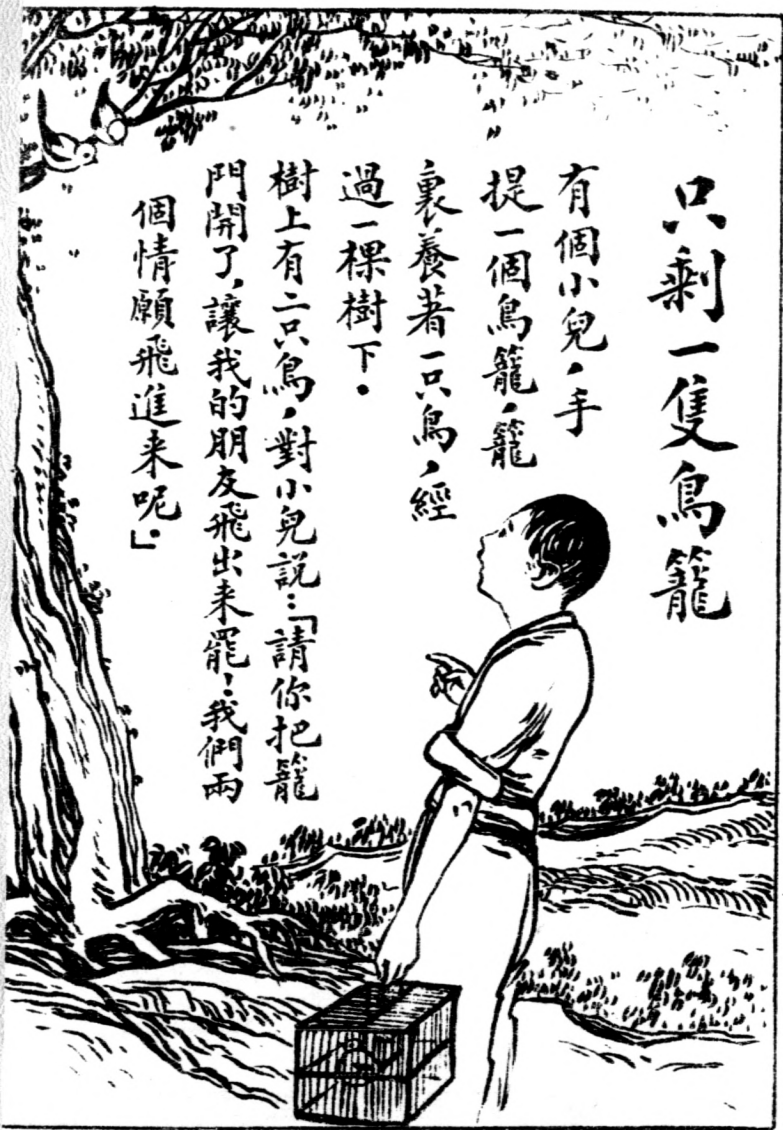 只剩一隻鳥籠
有個小兒，手
提一個鳥籠，籠
裏養着一只鳥，經
過一棵樹下。
樹上有二只鳥，對小兒説：「請你把籠
門開了，讓我的朋友飛出来罷！我們兩
個情願飛進来呢」。